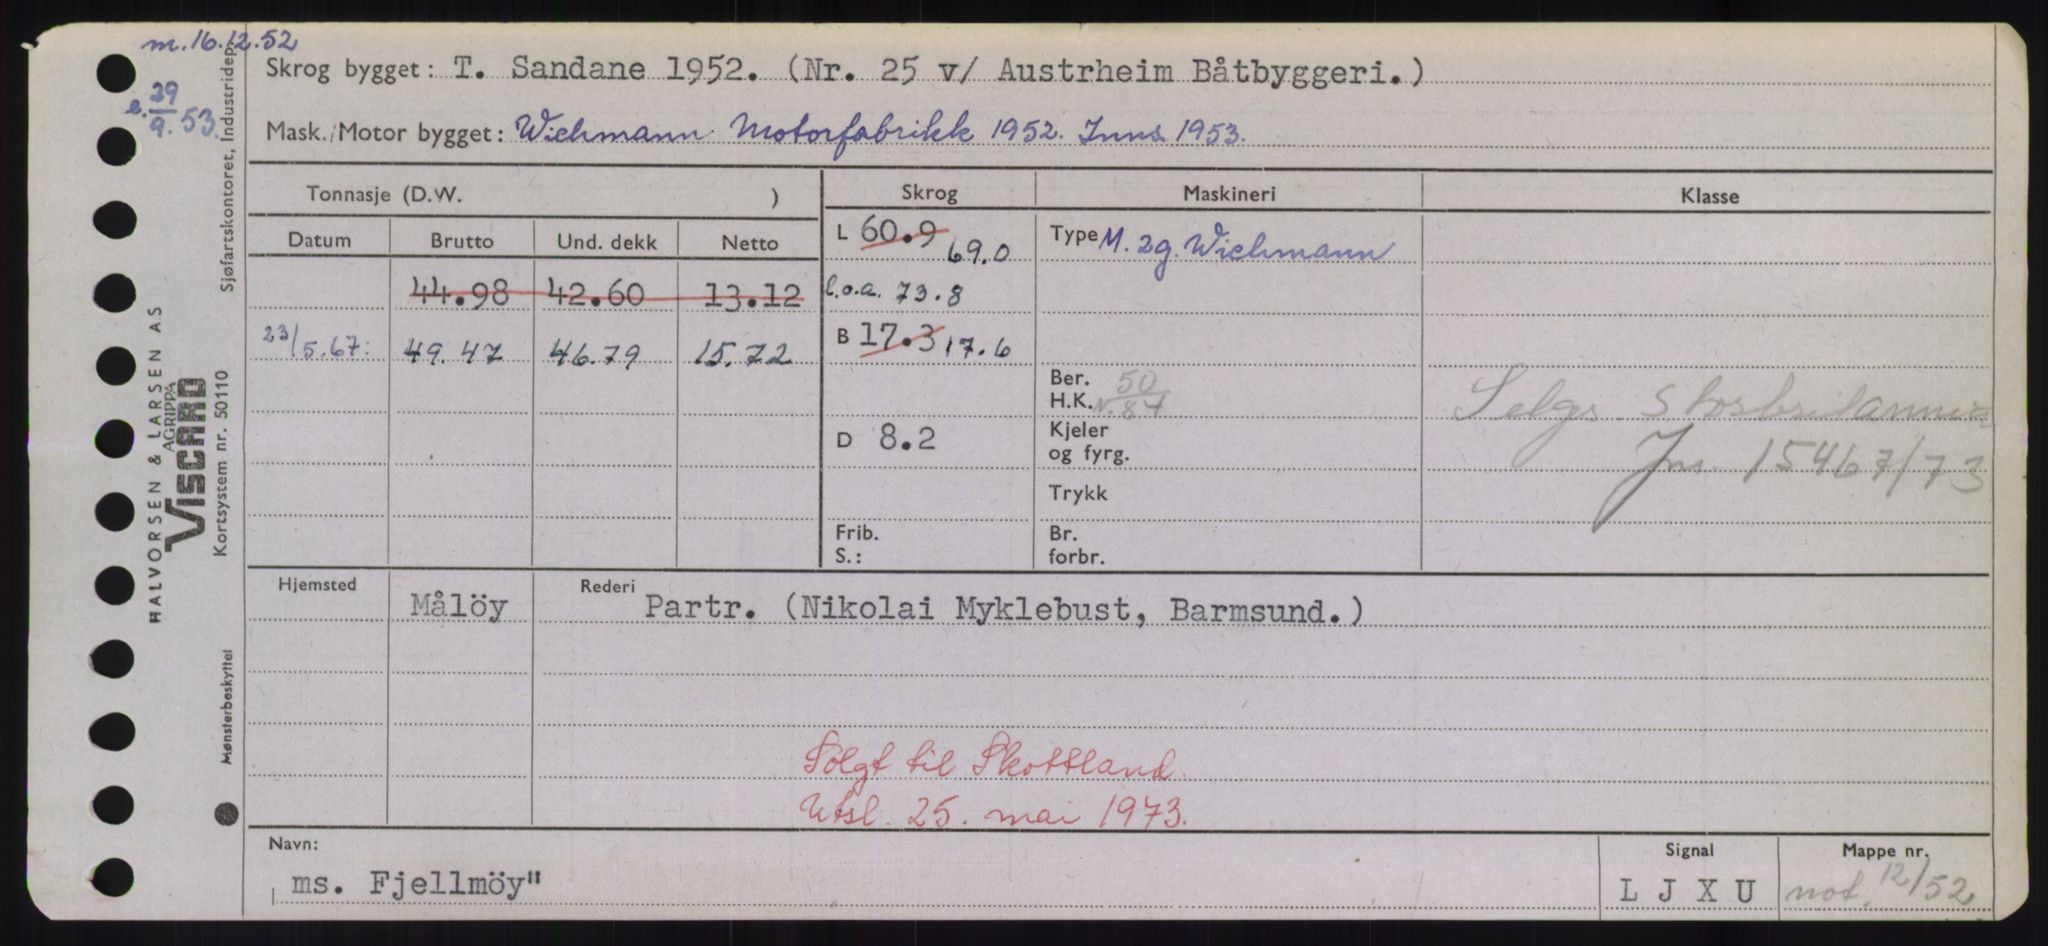 m. 16.12.52
e. 29/9. 53.
Skrog bygget: T. Sandane 1952. (Nr. 25 v/ Austrheim Båtbyggeri.)
Mask./Motor bygget: Wichmann Motorfabrikk 1952. Inns. 1953.
Tonnasje (D.W. )
Skrog
Maskineri
Klasse
Datum Brutto Und. dekk Netto
L 60.9 69.0
Type M. 2g. Wichmann
44.98 42.60 13.12
l.o.a. 73.8
23/5.67: 49.47 46.79 15.72
B 17.3 17.6
Ber.
H.K. 50
N. 84
Selges Storbritannien
Jns. 15467/73
D 8.2
Kjeler
og fyrg.
Trykk
Frib.
S.:
Br.
forbr.
Hjemsted Målöy
Rederi Partr. (Nikolai Myklebust, Barmsund.)
Solgt til Skottland.
Utsl. 25. mai 1973.
Navn:
ms. Fjellmöy"
Signal
L J X U
Mappe nr.
not. 12/52
HALVORSEN & LARSEN AS
AGRIPPA
VISCARD
Kortsystem nr. 50110
Sjøfartskontoret, Industridep.
Mønsterbeskyttet